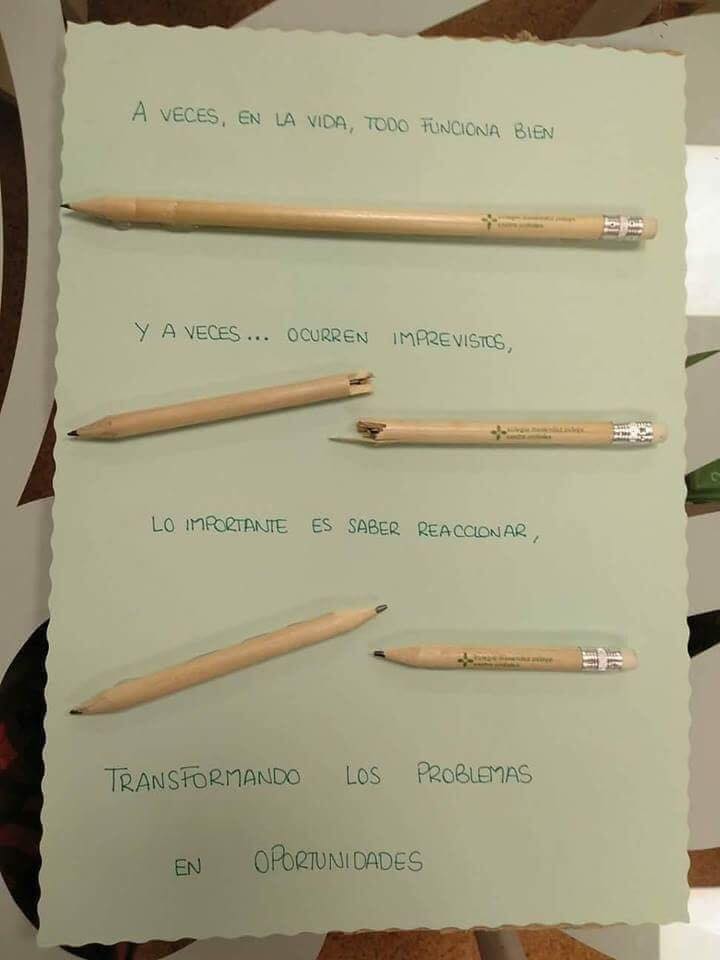 A VECES, EN LA VIDA, TODO FUNCIONA BIEN
Y A VECES... OCURREN IMPREVISTOS,
LO IMPORTANTE ES SABER REACCIONAR,
TRANSFORMANDO LOS PROBLEMAS
EN OPORTUNIDADES